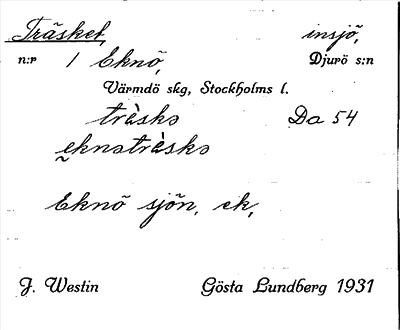 Träsket, insjö,
n:r 1 Eknö, Djurö s:n
Värmdö skg, Stockholms l.
trèskə Da 54
eknətrèskə
Eknö sjön, ek,
J. Westin Gösta Lundberg 1931